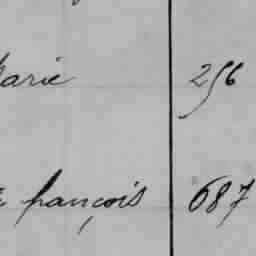 Marie 256
françois 687